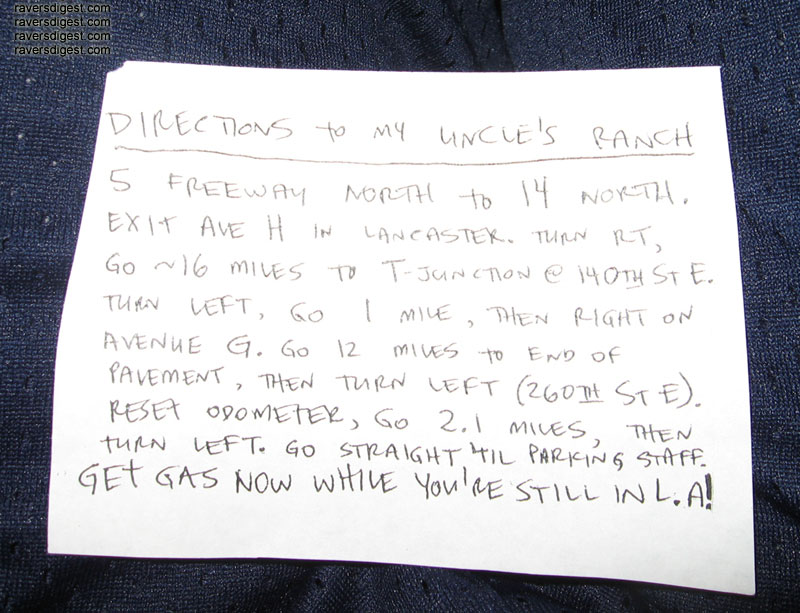 raversdigest.com
raversdigest.com
raversdigest.com
raversdigest.com
DIRECTIONS to MY UNCLE'S RANCH
5 FREEWAY NORTH to 14 NORTH.
EXIT AVE H IN LANCASTER. TURN RT,
GO ~16 MILES TO T-JUNCTION @ 140TH ST E.
TURN LEFT, GO 1 MILE, THEN RIGHT ON
AVENUE G. GO 12 MILES to END OF
PAVEMENT, THEN TURN LEFT (260TH ST E).
RESET ODOMETER, GO 2.1 MILES, THEN
TURN LEFT. GO STRAIGHT 'TIL PARKING STAFF.
GET GAS NOW WHILE YOU'RE STILL IN L.A!